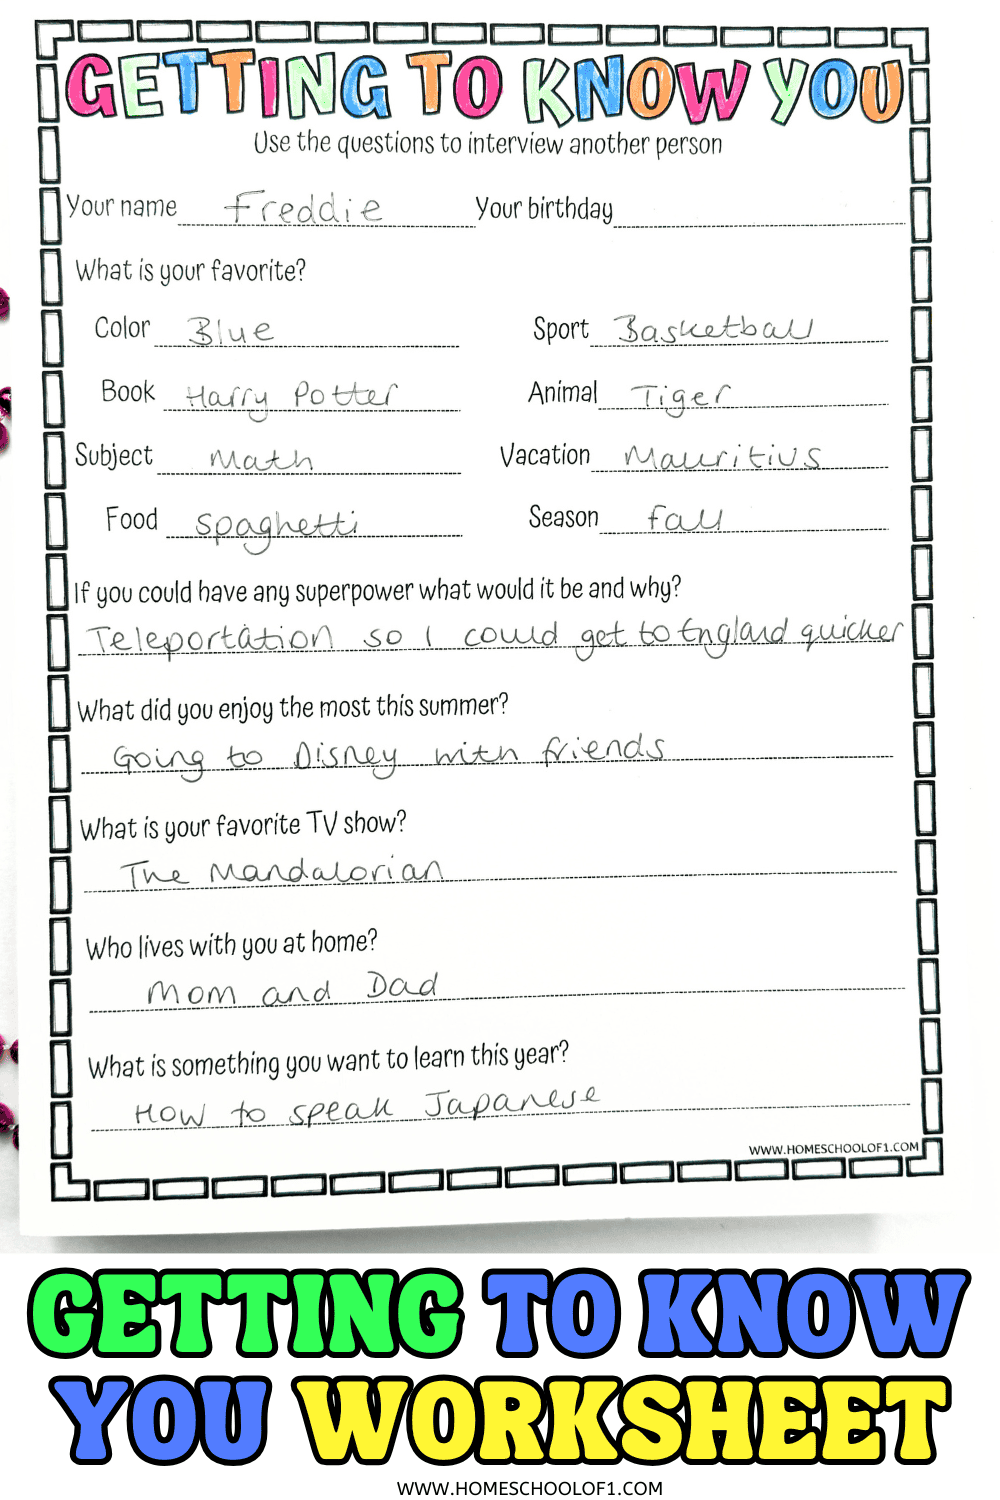 GETTING TO KNOW YOU
Use the questions to interview another person
Your name Freddie Your birthday
What is your favorite?
Color Blue Sport Basketball
Book Harry Potter Animal Tiger
Subject Math Vacation Mauritius
Food Spaghetti Season fall
If you could have any superpower what would it be and why?
Teleportation so I could get to England quicker
What did you enjoy the most this summer?
Going to Disney with friends
What is your favorite TV show?
The Mandalorian
Who lives with you at home?
Mom and Dad
What is something you want to learn this year?
How to speak Japanese
WWW.HOMESCHOOLOF1.COM
GETTING TO KNOW
YOU WORKSHEET
WWW.HOMESCHOOLOF1.COM